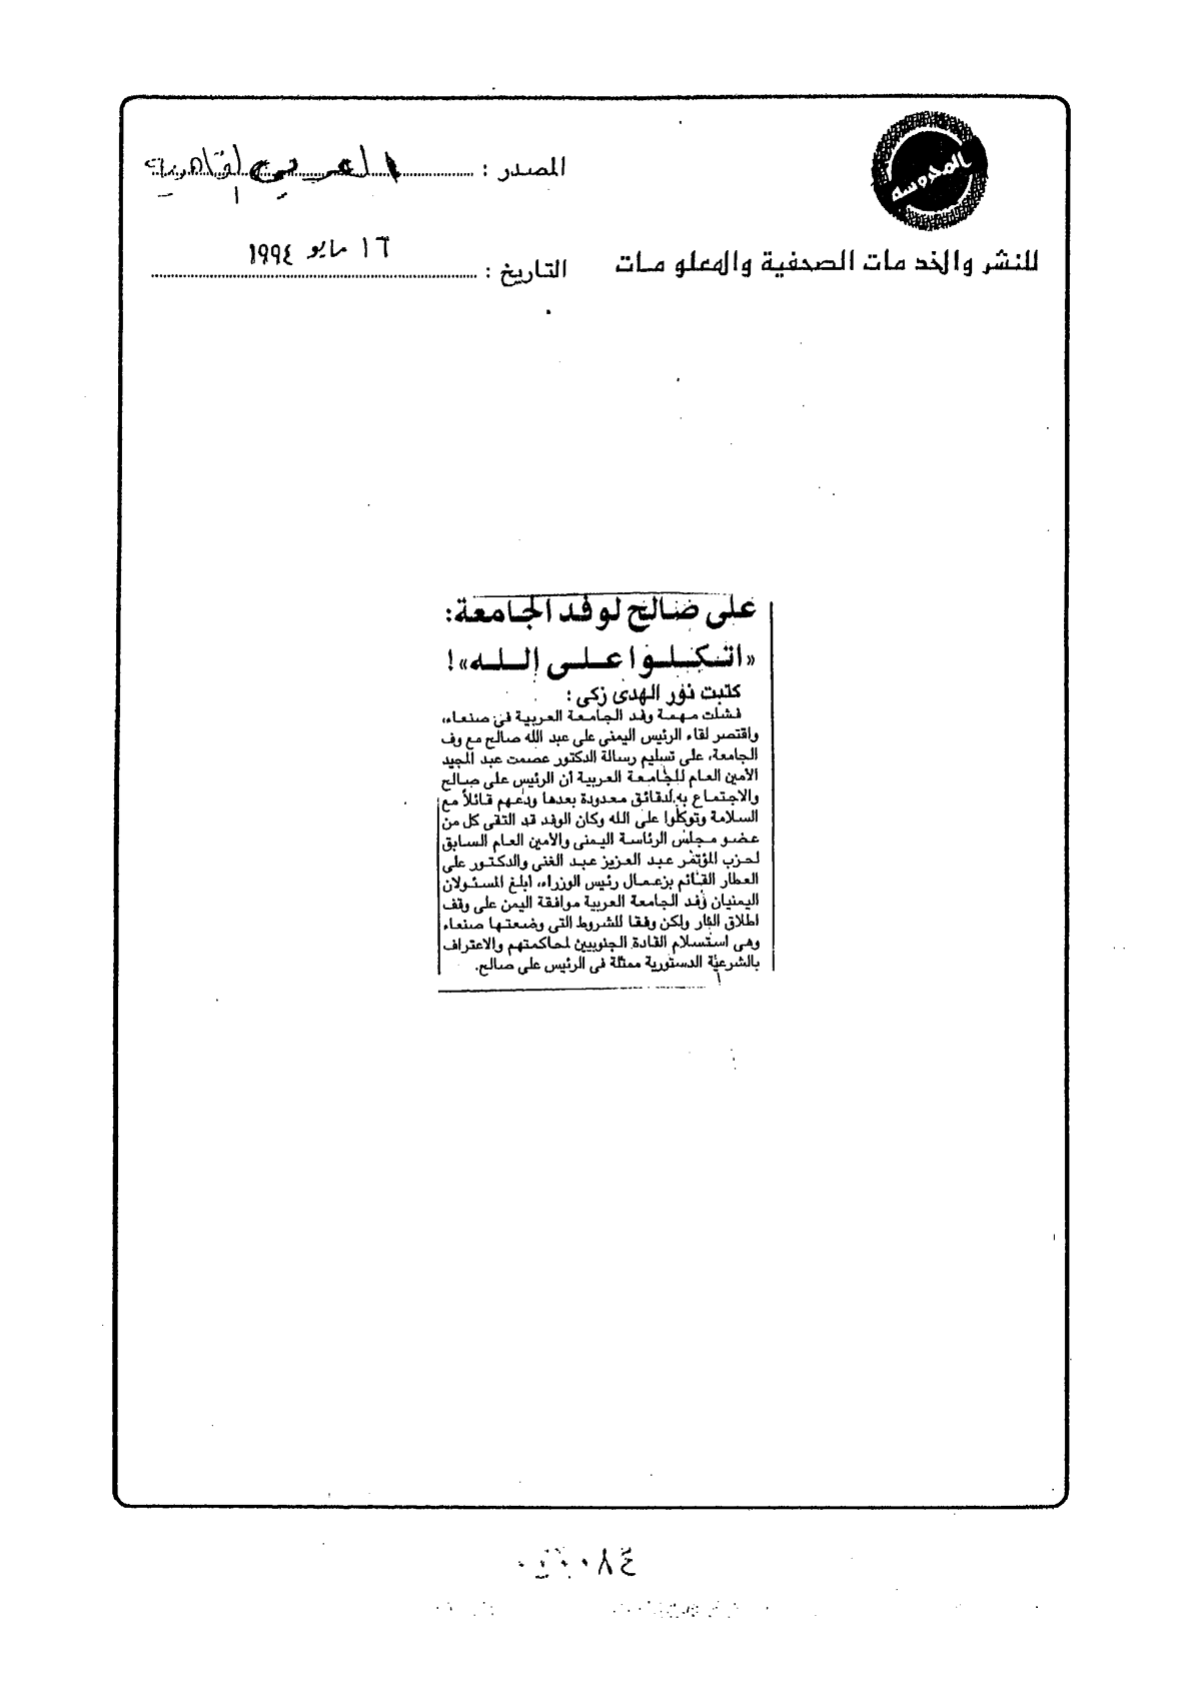 المحروسة
المصدر : العربي القاهرية
للنشر والخدمات الصحفية والمعلومات
التاريخ : ١٦ مايو ١٩٩٤
على صالح لوفد الجامعة:
«اتكلوا على الله»!
كتبت نور الهدى زكى :
فشلت مهمة وفد الجامعة العربية فى صنعاء،
واقتصر لقاء الرئيس اليمنى على عبد الله صالح مع وف
الجامعة، على تسليم رسالة الدكتور عصمت عبد المجيد
الأمين العام للجامعة العربية أن الرئيس على صالح
والاجتماع به لدقائق معدودة بعدها ودعهم قائلاً مع
السلامة وتوكلوا على الله وكان الوفد قد التقى كل من
عضو مجلس الرئاسة اليمنى والأمين العام السابق
لحزب المؤتمر عبد العزيز عبد الغنى والدكتور على
العطار القائم بزعمال رئيس الوزراء، ابلغ المسئولان
اليمنيان وفد الجامعة العربية موافقة اليمن على وقف
اطلاق النار ولكن وفقا للشروط التى وضعتها صنعاء
وهى استسلام القادة الجنوبيين لمحاكمتهم والاعتراف
بالشرعية الدستورية ممثلة فى الرئيس على صالح.